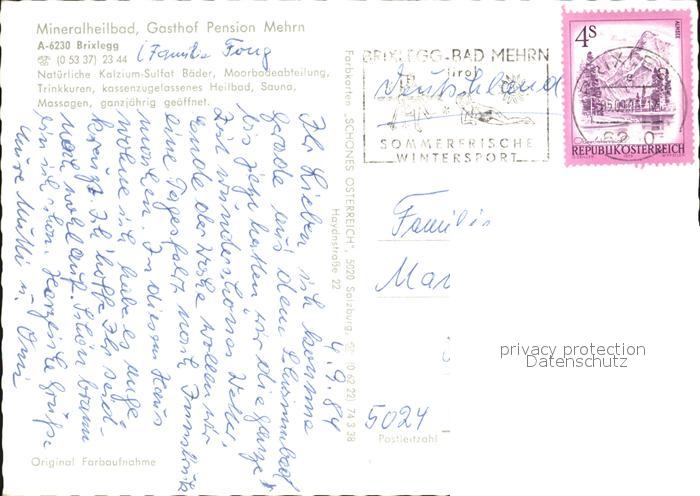 Mineralheilbad, Gasthof Pension Mehrn
A-6230 Brixlegg
☏ (0 53 37) 23 44 (Familie
Natürliche Kalzium-Sulfat Bäder, Moorbadeabteilung,
Trinkkuren, kassenzugelassenes Heilbad, Sauna,
Massagen, ganzjährig geöffnet.
4.9.84
Ihr Lieben ich komme
gerade aus dem
bis jetzt hatten wir die ganze
Zeit wunderschönes Wetter,
ende der Woche wollen wir
eine Tagesfahrt nach Innsbruck
machen. In diesem Haus
wohne ich, habe es
Ich hoffe Ihr seid
noch wohlauf. Schön braun
bin ich schon. Herzliche Grüße
Eure Mutti u. Oma
Original Farbaufnahme
Farbkarten „SCHÖNES ÖSTERREICH", 5020 Salzburg, ☏ (0 62 22) 74 3 38
Haydnstraße 22
BRIXLEGG-BAD MEHRN
Tirol
SOMMERFRISCHE
WINTERSPORT
Deutschland
4S
ALMSEE
REPUBLIK ÖSTERREICH
Familie
Mar
5024
Postleitzahl
privacy protection
Datenschutz